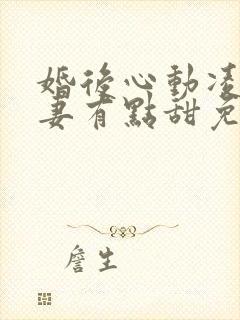 婚後心動凌
妻有點甜免
詹生